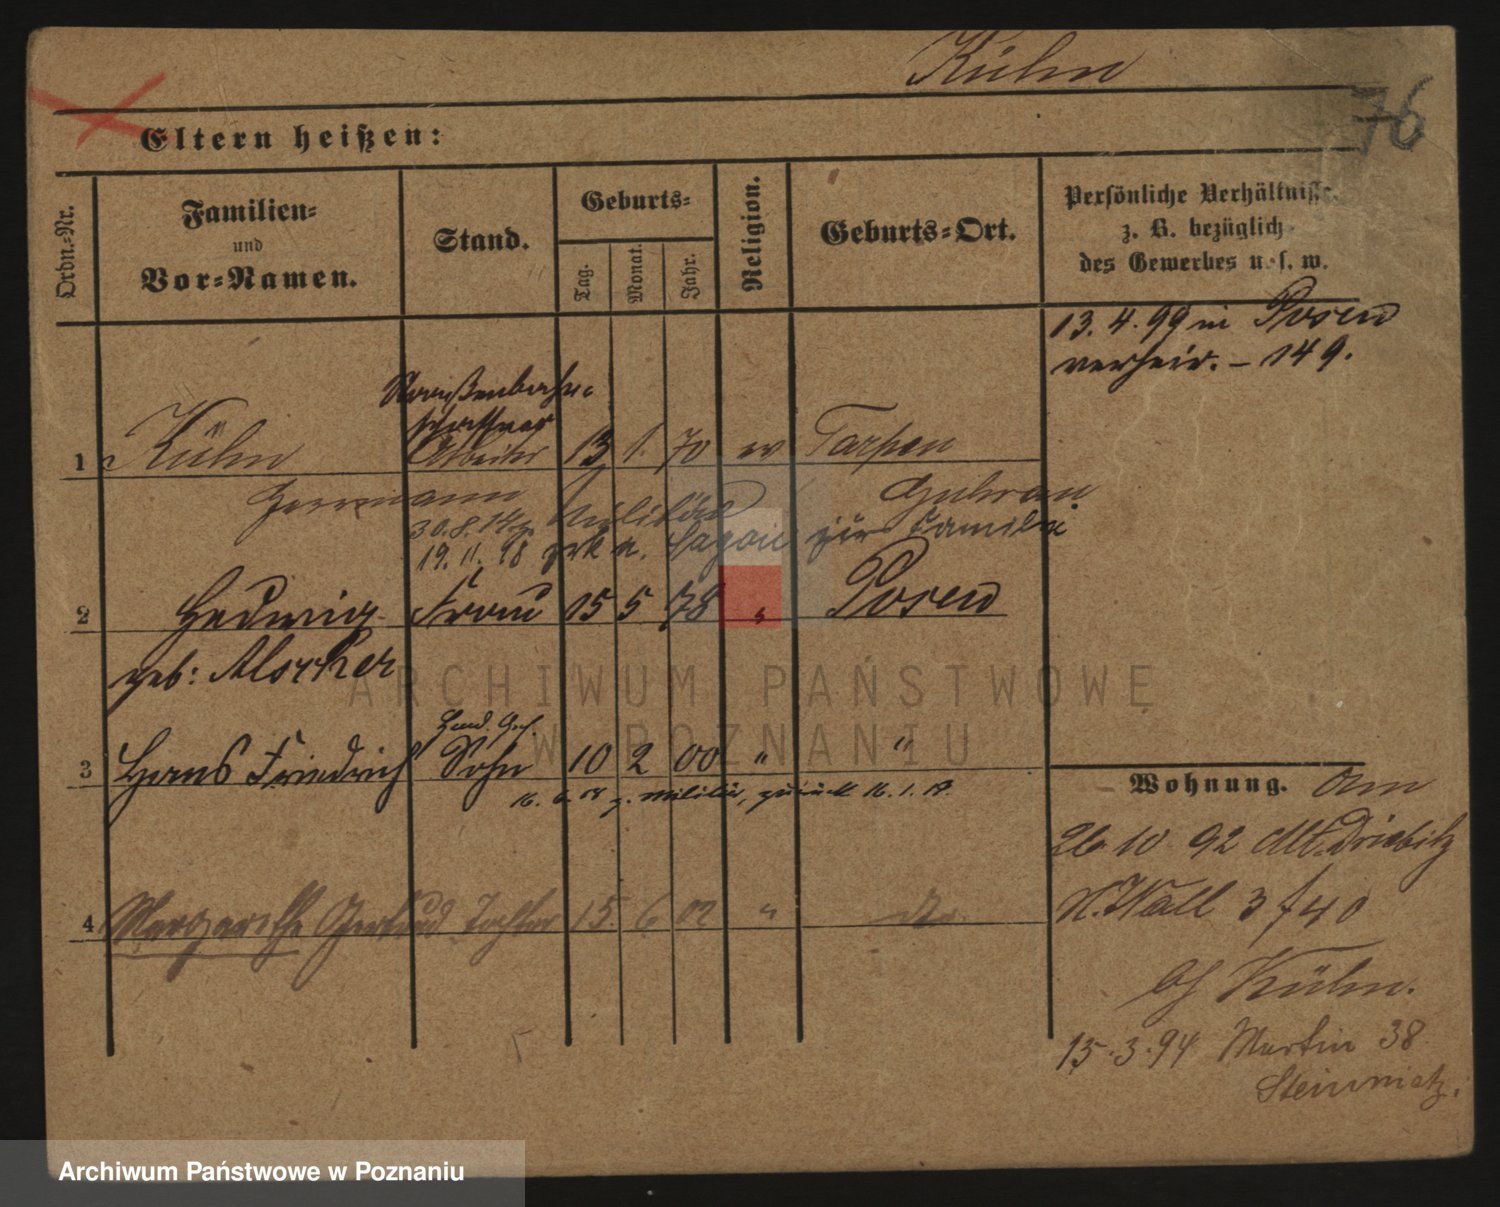 Kühn
76
Eltern heißen:
Ordn.-Nr.
Familien-
und
Vor-Namen.
Stand.
Geburts-
Tag.
Monat.
Jahr.
Religion.
Geburts-Ort.
Persönliche Verhältnisse
z. B. bezüglich
des Gewerbes u. s. w.
13. 4. 99 in Posen
verheir. – 149.
Straßenbahn-
schaffner
1 Kühn Arbeiter 13 1. 70 ev Tarpen
Herrmann Guhrau
30.8.14 z. Militär
19. 11. 18 zrk a. zur Familie
2 Hedwig Frau 15 5 78 " Posen
geb:
Hand. Geh.
3 Hans Friedrich Sohn 10 2 00 " "
16. 6. 18 z. Militär, zurück 16. 1. 19.
4 Margarethe Gertrud Tochter 15. 6 02 " do
Wohnung. Am
26 10 92 Alt. Driebitz
N. Wall 3 f 40
bf Kühn.
15. 3. 94 Martin 38
Steinmetz.
ARCHIWUM PAŃSTWOWE
W POZNANIU
Archiwum Państwowe w Poznaniu